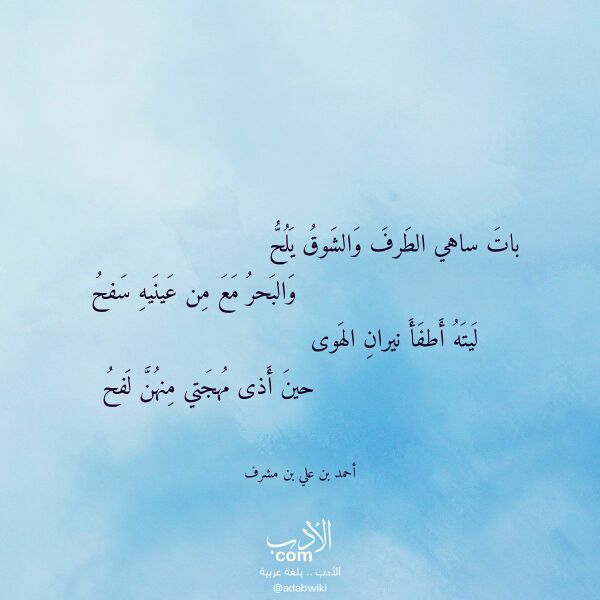 باتَ ساهي الطَرفَ وَالشَوقُ يَلُحُّ
وَالبَحرُ مَعَ مِن عَينَيهِ سَفحُ
لَيتَهُ أَطفَأَ نيرانِ الهَوى
حينَ أَذى مُهجَتي مِنهُنَّ لَفحُ
أحمد بن علي بن مشرف
الأدب
com
الأدب .. بلغة عربية
@adabwiki